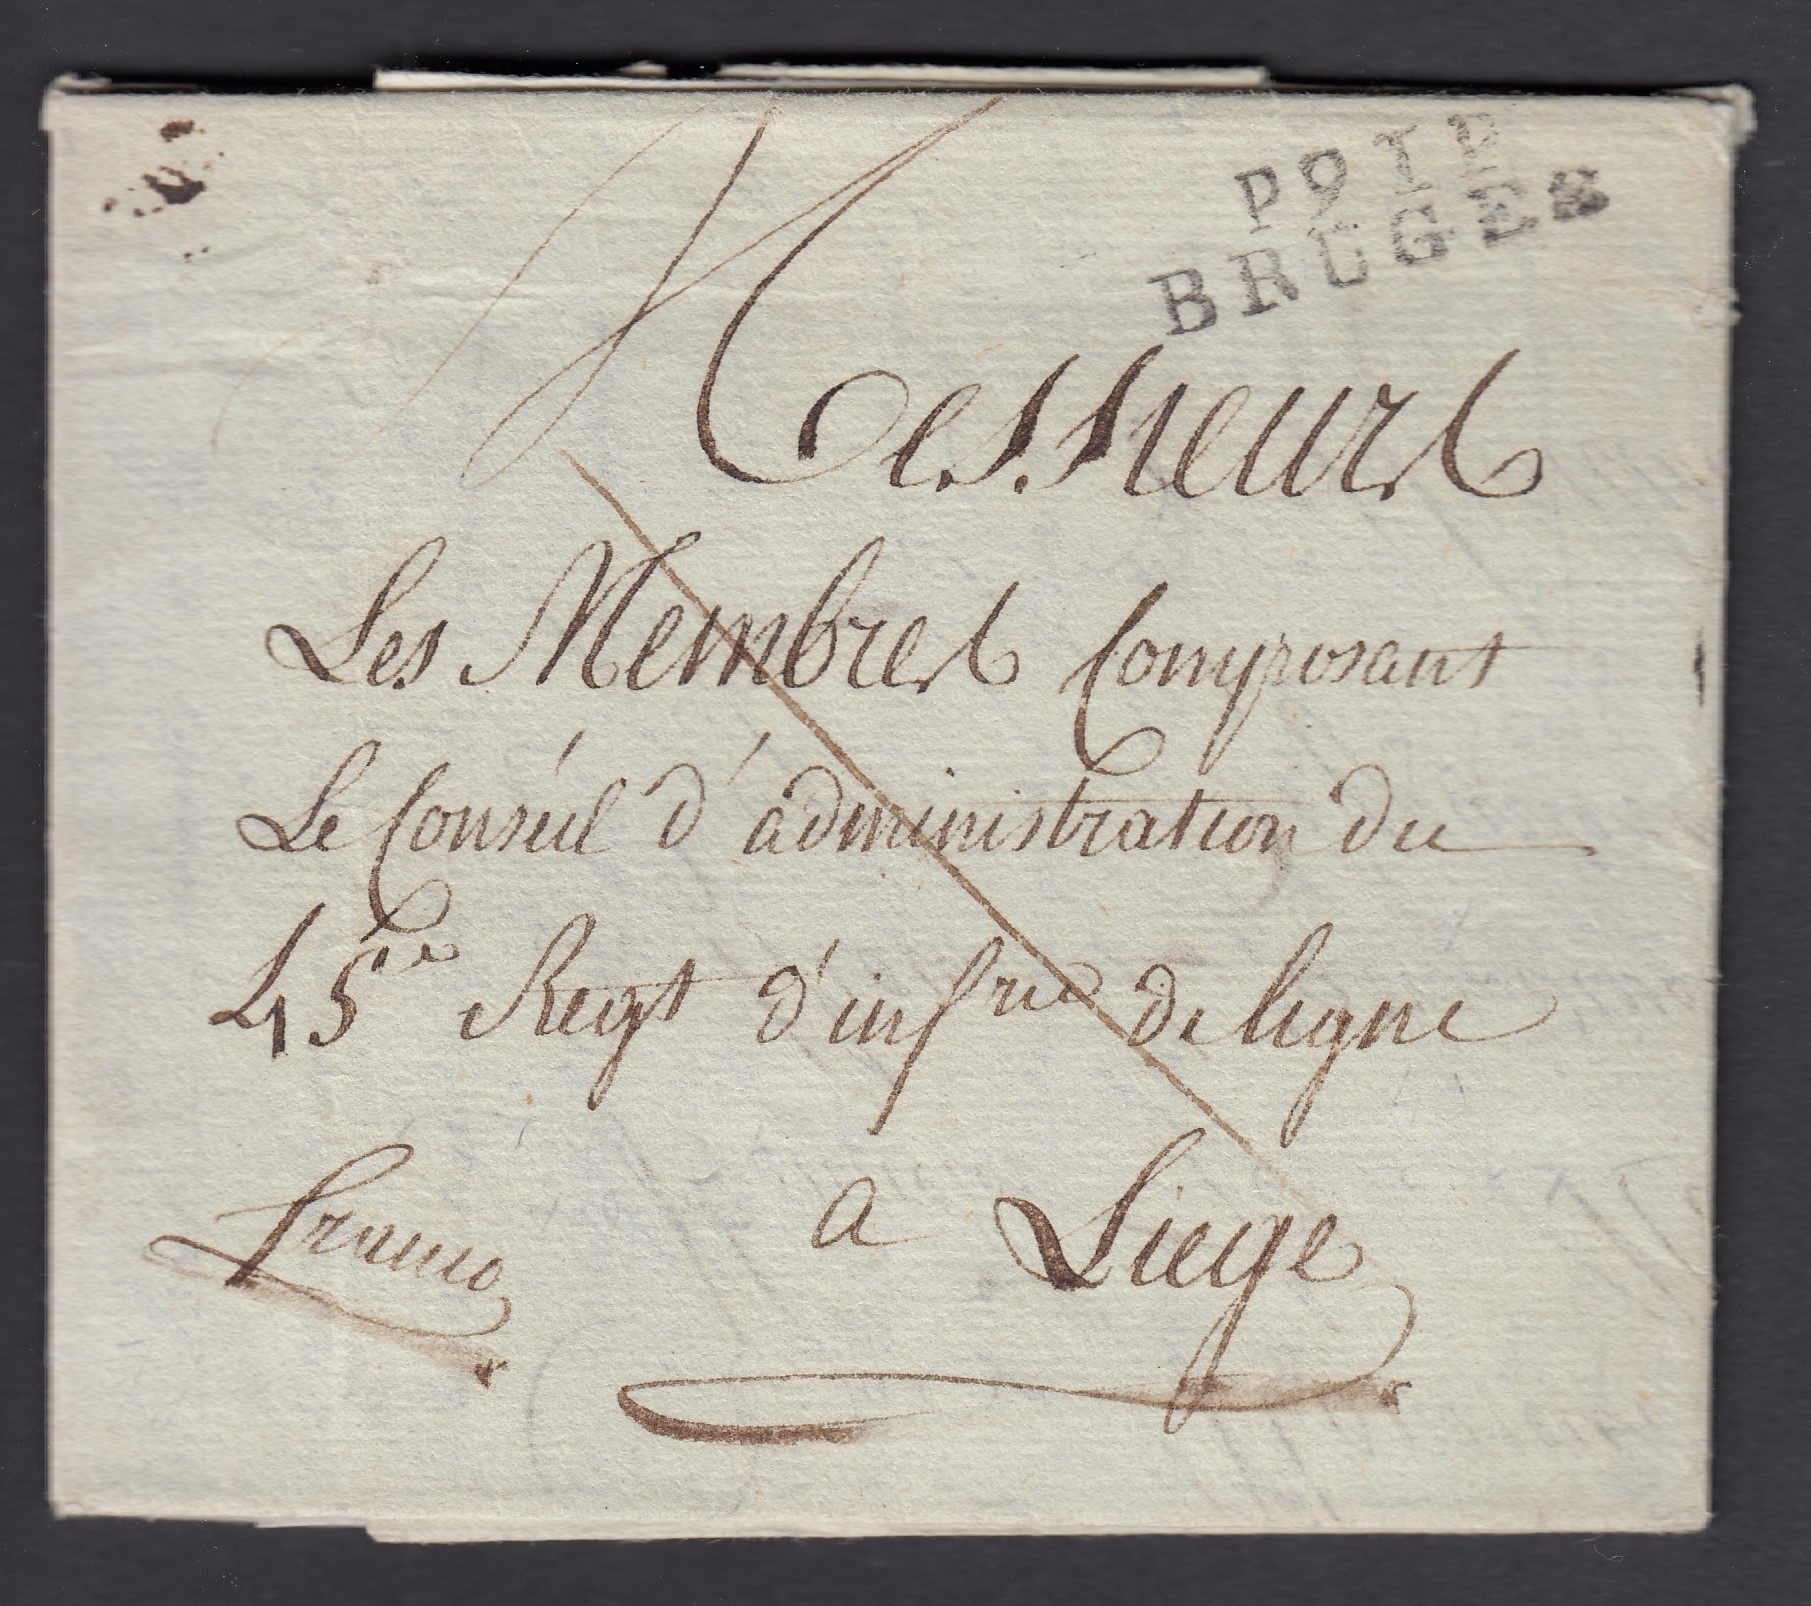 P91P
BRUGES
Messieurs
Les Membres Composant
Le Conséil d'administration du
45e Regt d'infrie de ligne
a Liege
franco